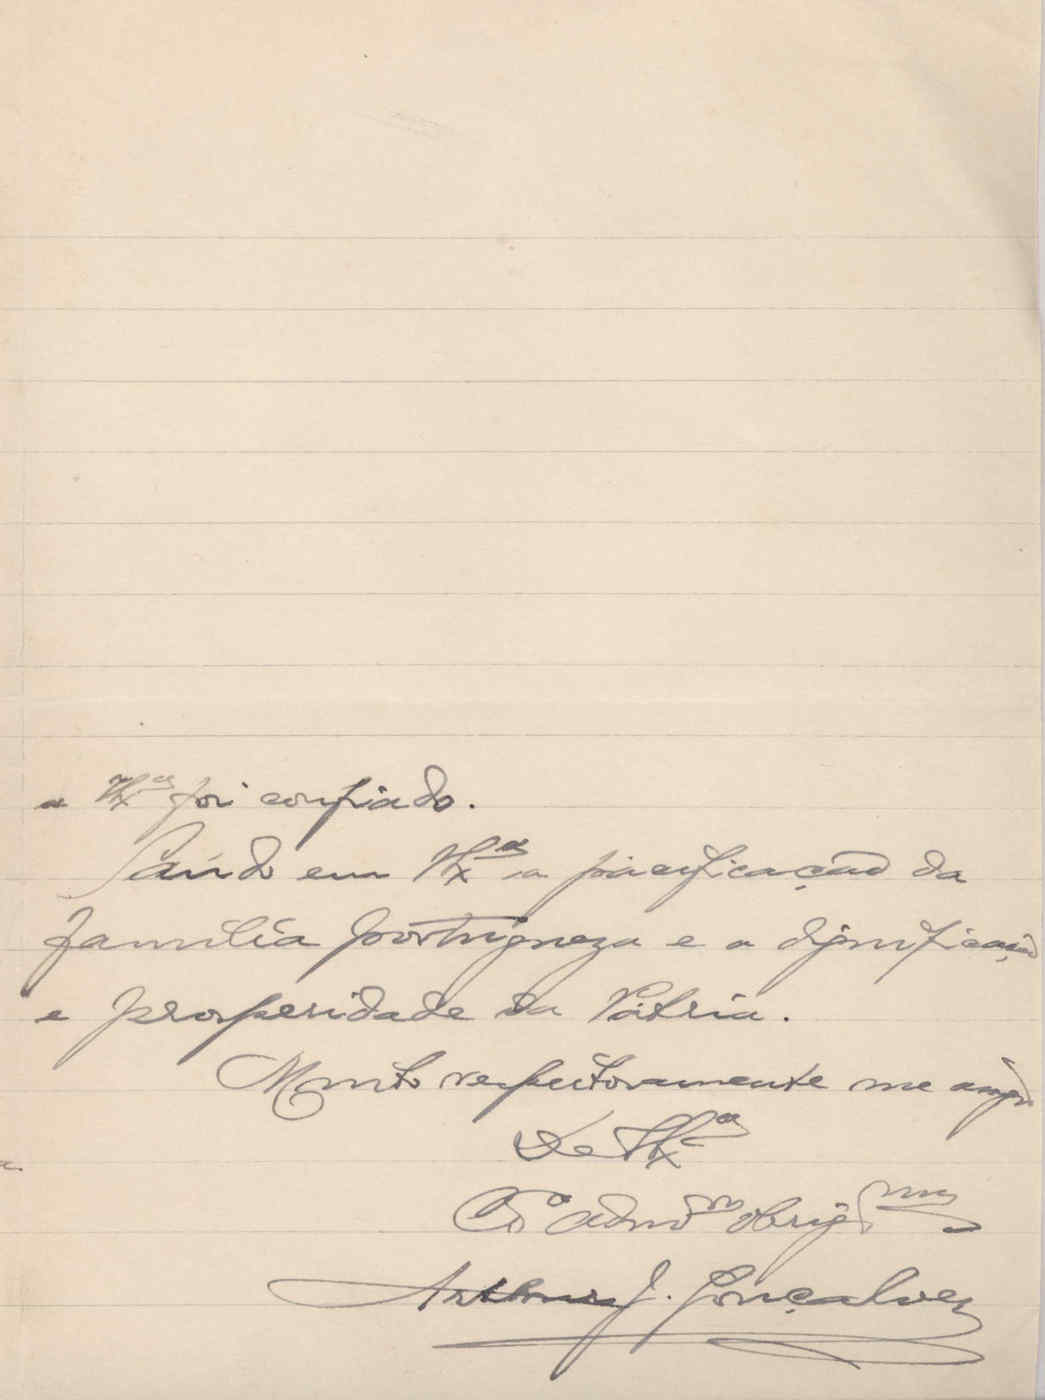 a V. Exª foi confiado.
Saúdo em V. Exª a pacificação da
família portugueza e a dignificação
e prosperidade da Pátria.
Muito respeitosamente me assigno
De V. Exª
Cdº admor obrigmo
Antonio J. Gonçalves